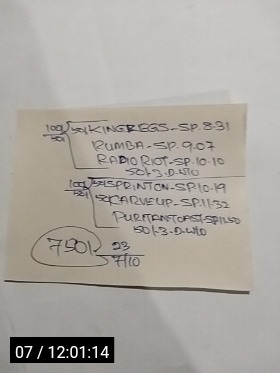 100/501 50/ KINGREGS-SP.8-31
RUMBA-SP.9.07
RADIO RIOT-SP.10.10
50/-3-D-W/O
100/501 50/ SPRINTON-SP.10-19
50/ CARVEUP-SP.11-32
PURITANTOAST-SP.11-50
50/-3-D-W/O
750/ 23
7/10
07 / 12:01:14